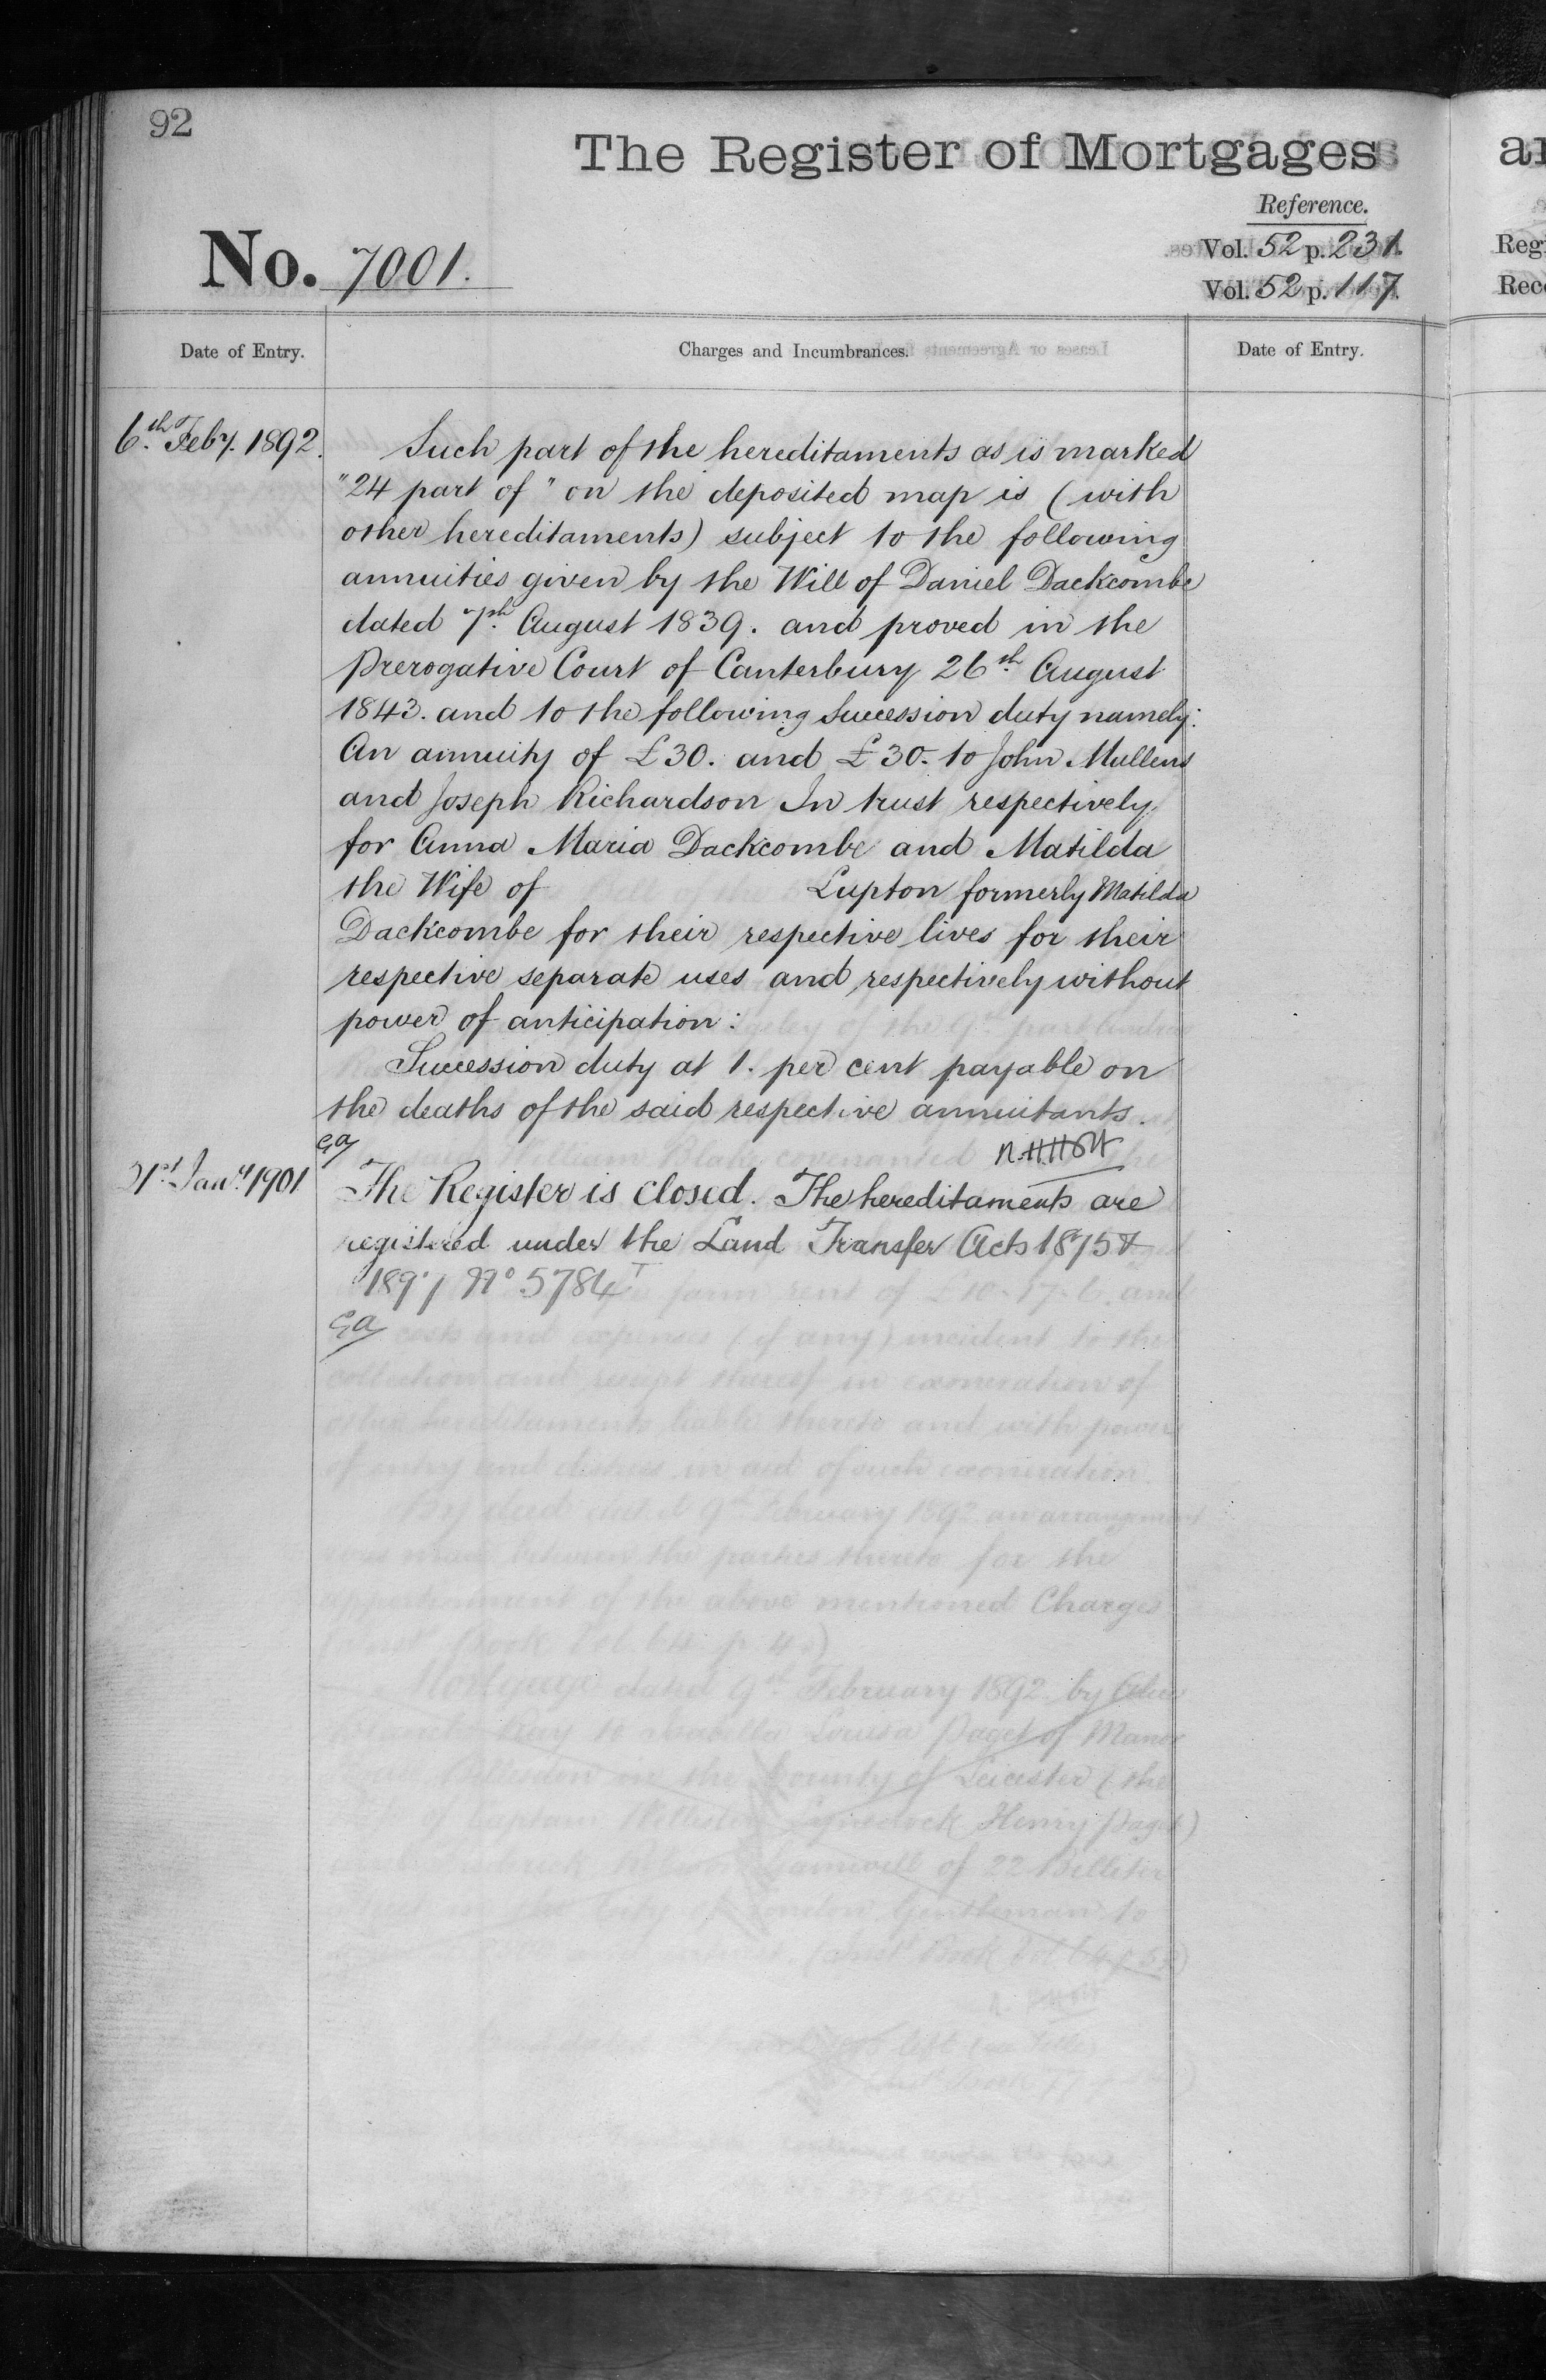 92
The Register of Mortgages
Reference.
Vol. 52 p. 231.
Vol. 52 p. 117.
No. 7001.
Date of Entry.
Charges and Incumbrances.
Date of Entry.
6th Feby. 1892.
Such part of the hereditaments as is marked
"24 part of" on the deposited map is (with
other hereditaments) subject to the following
annuities given by the Will of Daniel Dackcombe
dated 7th August 1839. and proved in the
Prerogative Court of Canterbury 26th August
1843. and to the following Succession duty namely:
An annuity of £30. and £30. to John Mullens
and Joseph Richardson In trust respectively
for Anna Maria Dackcombe and Matilda
the Wife of Lupton formerly Matilda
Dackcombe for their respective lives for their
respective separate uses and respectively without
power of anticipation:
Succession duty at 1. per cent payable on
the deaths of the said respective annuitants.
Jany 1901
The Register is closed. The hereditaments are
registered under the Land Transfer Acts 1875 &
1897 No 5784